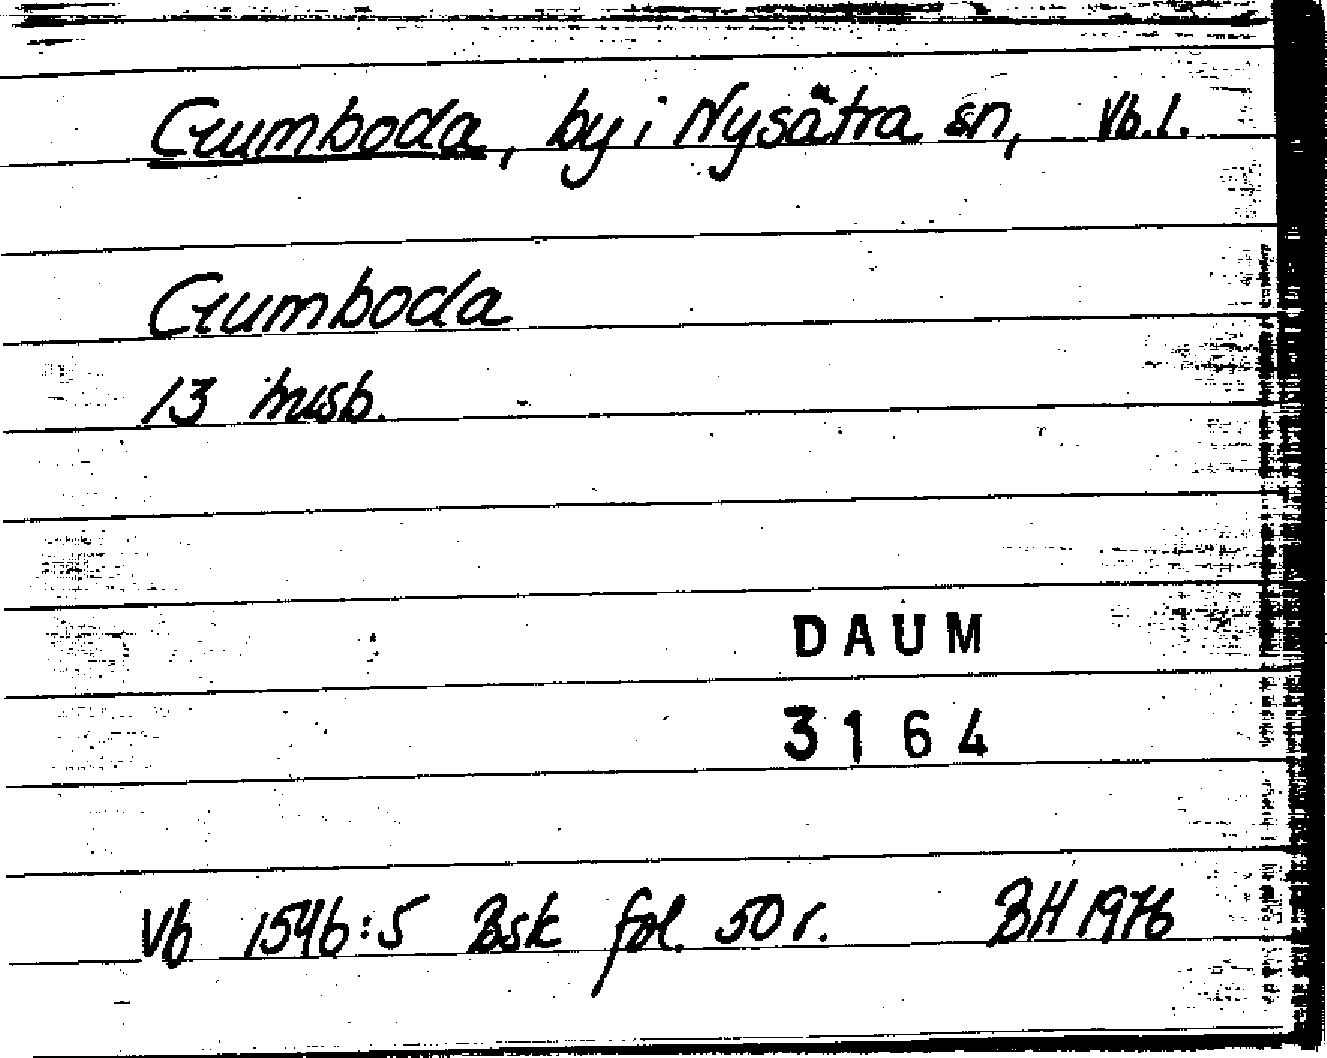 Gumboda, by i Nysätra sn, Vb. l.
Gumboda
13 husb.
DAUM
3164
Vb 1546:5 Bsk fol. 50 r. BH 1976